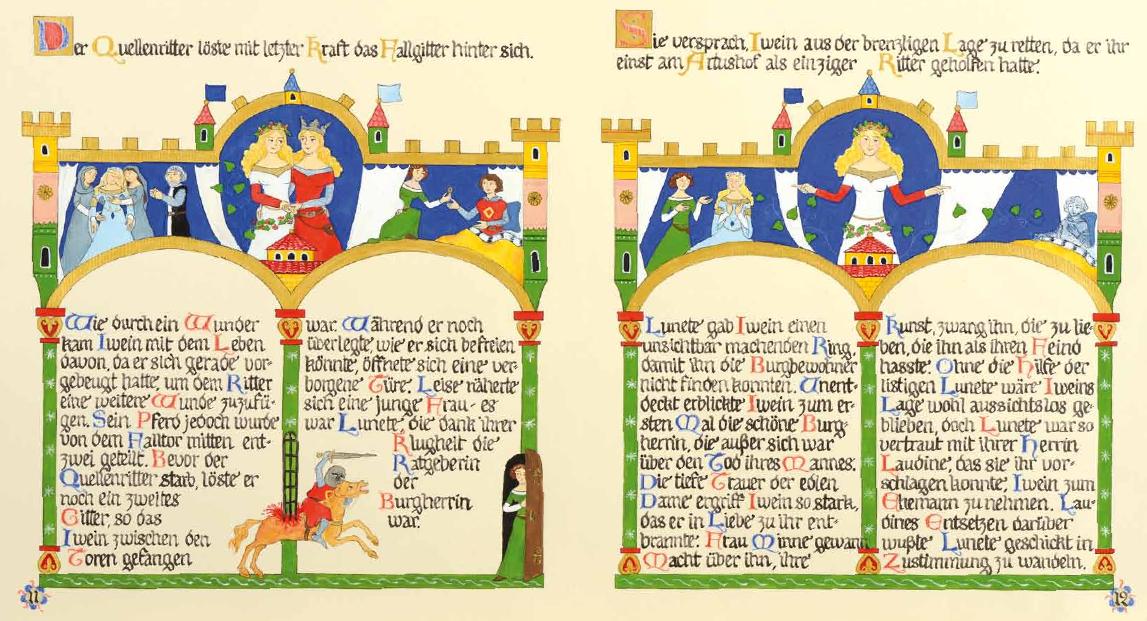 Der Quellenritter löste mit letzter Kraft das Fallgitter hinter sich.
Wie durch ein Wunder
kam Iwein mit dem Leben
davon, da er sich gerade vor-
gebeugt hatte, um dem Ritter
eine weitere Wunde zuzufü-
gen. Sein Pferd jedoch wurde
von dem Falltor mitten ent-
zwei geteilt. Bevor der
Quellenritter starb, löste er
noch ein zweites
Gitter, so das
Iwein zwischen den
Toren gefangen
war. Während er noch
überlegte, wie er sich befreien
könnte, öffnete sich eine ver-
borgene Türe. Leise näherte
sich eine junge Frau - es
war Lunete, die dank ihrer
Klugheit die
Ratgeberin
der
Burgherrin
war.
11
Sie versprach, Iwein aus der brenzligen Lage zu retten, da er ihr
einst am Artushof als einziger Ritter geholfen hatte.
Lunete gab Iwein einen
unsichtbar machenden Ring,
damit ihn die Burgbewohner
nicht finden konnten. Unent-
deckt erblickte Iwein zum er-
sten Mal die schöne Burg-
herrin, die außer sich war
über den Tod ihres Mannes.
Die tiefe Trauer der edlen
Dame ergriff Iwein so stark,
das er in Liebe zu ihr ent-
brannte. Frau Minne gewann
Macht über ihn, ihre
Kunst, zwang ihn, die zu lie-
ben, die ihn als ihren Feind
hasste. Ohne die Hilfe der
listigen Lunete wäre Iweins
Lage wohl aussichtslos ge-
blieben, doch Lunete war so
vertraut mit ihrer Herrin
Laudine, das sie ihr vor-
schlagen konnte, Iwein zum
Ehemann zu nehmen. Lau-
dines Entsetzen darüber
wußte Lunete geschickt in
Zustimmung zu wandeln.
12